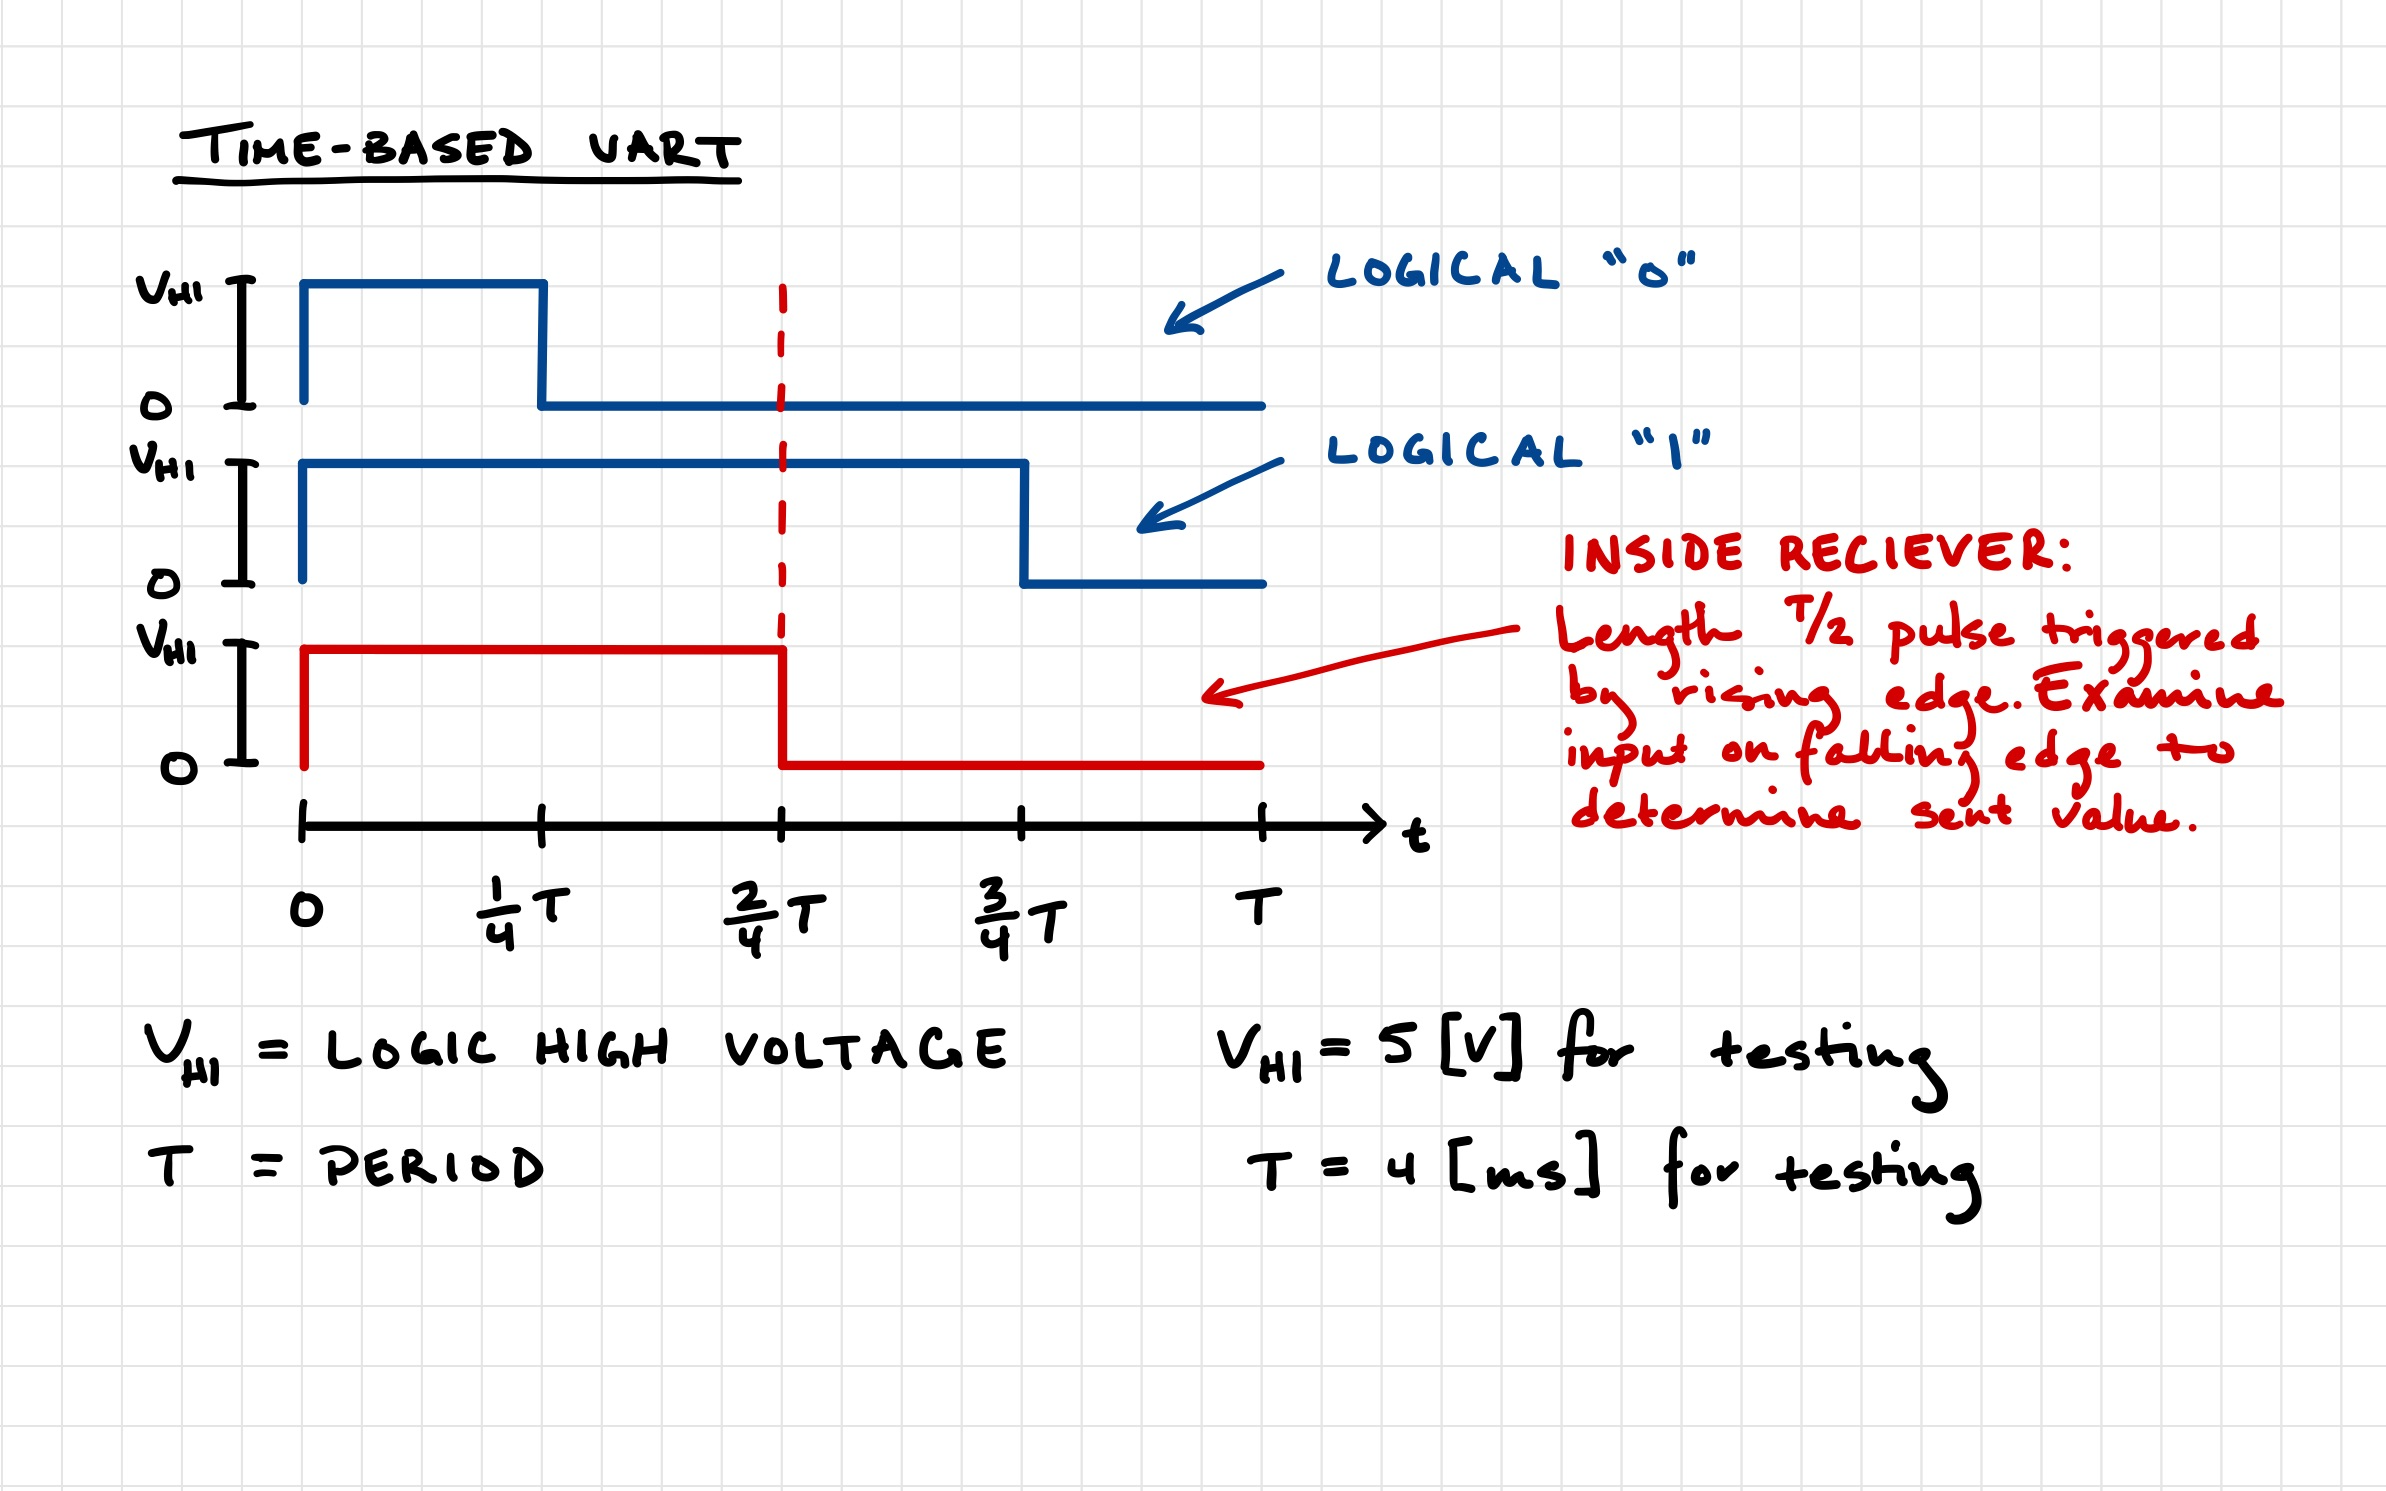 TIME-BASED UART
LOGICAL "0"
V_HI
0
LOGICAL "1"
V_HI
0
INSIDE RECIEVER:
Length T/2 pulse triggered
by rising edge. Examine
input on falling edge to
determine sent value.
V_HI
0
t
0
1/4 T
2/4 T
3/4 T
T
V_HI = LOGIC HIGH VOLTAGE
V_HI = 5 [V] for testing
T = PERIOD
T = 4 [ms] for testing